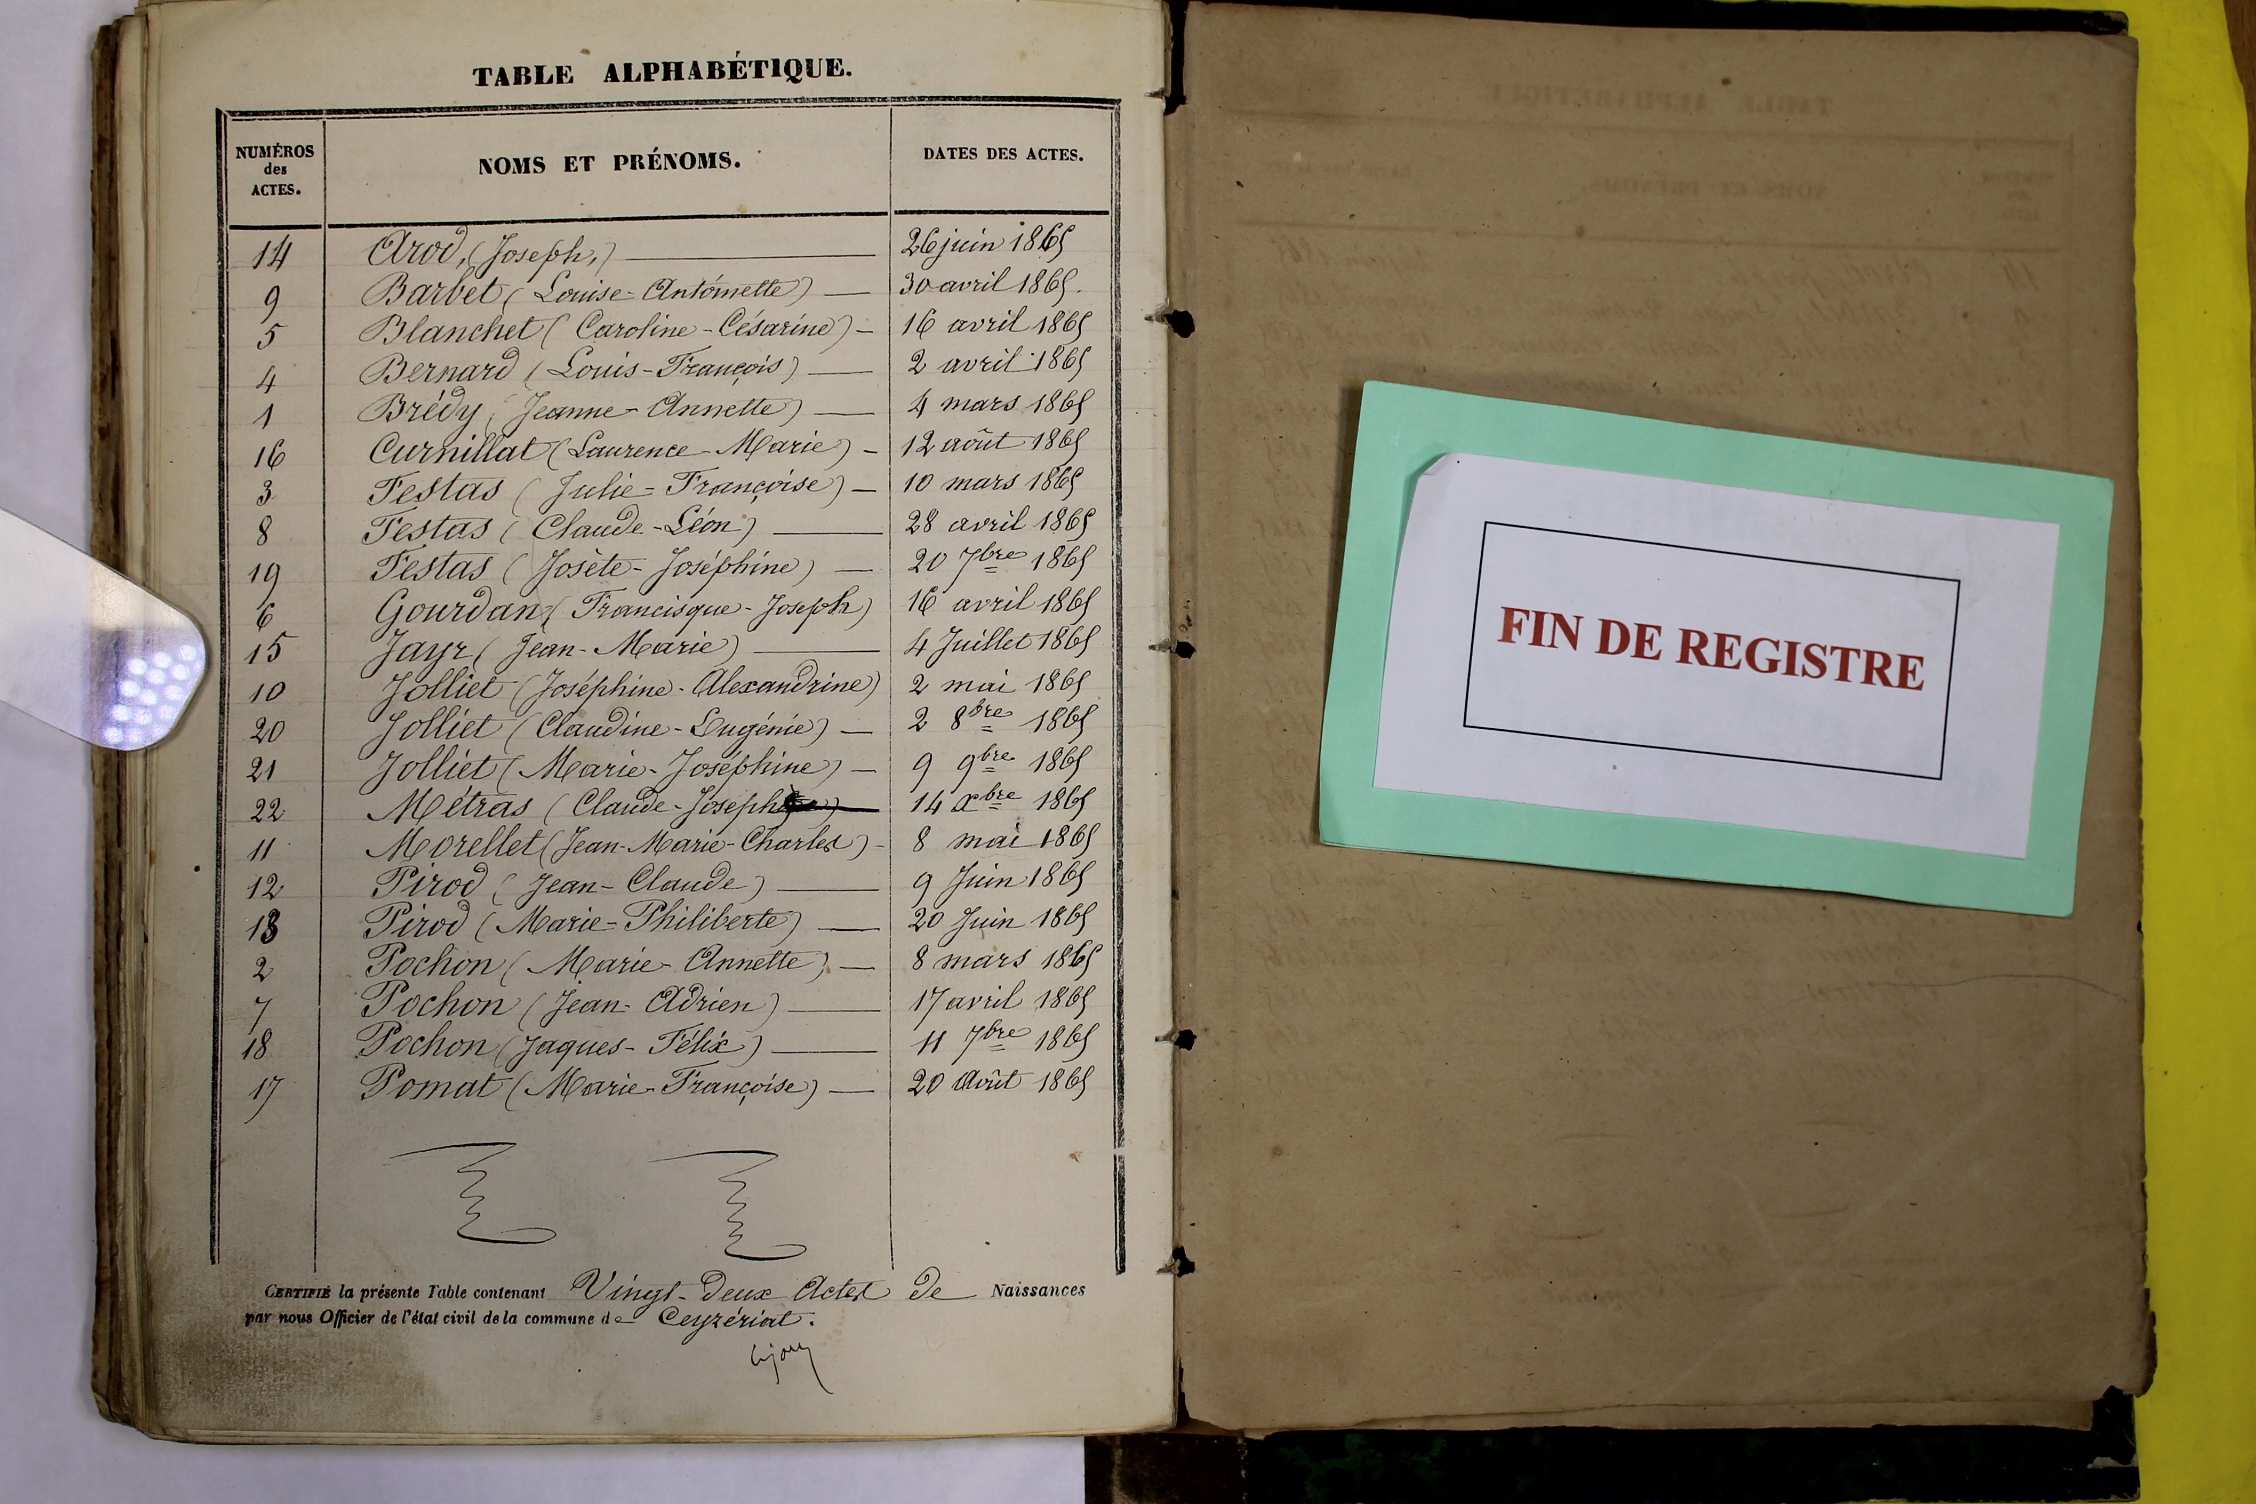 TABLE ALPHABÉTIQUE.
NUMÉROS des ACTES. NOMS ET PRÉNOMS. DATES DES ACTES.
14 Arod, (Joseph,) 26 juin 1865
9 Barbet (Louise-Antoinette) 30 avril 1865.
5 Blanchet (Caroline-Césarine) 16 avril 1865
4 Bernard (Louis-François) 2 avril 1865
1 Brédy (Jeanne-Annette) 4 mars 1865
16 Curnillat (Laurence-Marie) 12 août 1865
3 Festas (Julie-Françoise) 10 mars 1865
8 Festas (Claude-Léon) 28 avril 1865
19 Festas (Josète-Joséphine) 20 7bre 1865
6 Gourdan (Francisque-Joseph) 16 avril 1865
15 Jayr (Jean-Marie) 4 Juillet 1865
10 Jolliet (Joséphine-Alexandrine) 2 mai 1865
20 Jolliet (Claudine-Eugénie) 2 8bre 1865
21 Jolliet (Marie-Joséphine) 9 9bre 1865
22 Métras (Claude-Joseph) 14 xbre 1865
11 Morellet (Jean-Marie-Charles) 8 mai 1865
12 Pirod (Jean-Claude) 9 Juin 1865
13 Pirod (Marie-Philiberte) 20 Juin 1865
2 Pochon (Marie-Annette) 8 mars 1865
7 Pochon (Jean-Adrien) 17 avril 1865
18 Pochon (Jaques-Félix) 11 7bre 1865
17 Pomat (Marie-Françoise) 20 Août 1865
CERTIFIÉ la présente Table contenant Vingt-deux Actes de Naissances
par nous Officier de l'état civil de la commune de Ceyzériat.
FIN DE REGISTRE